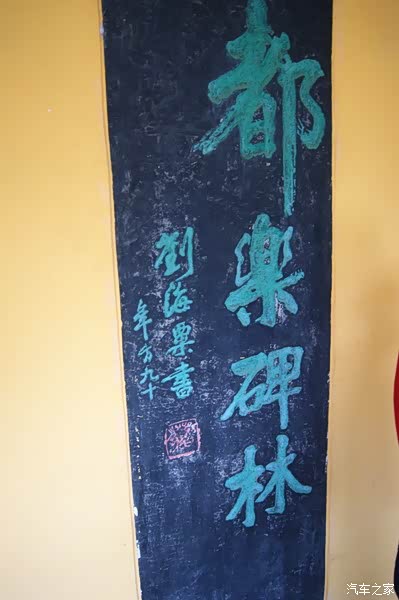 都樂碑林
劉海粟書
年方九十
汽车之家